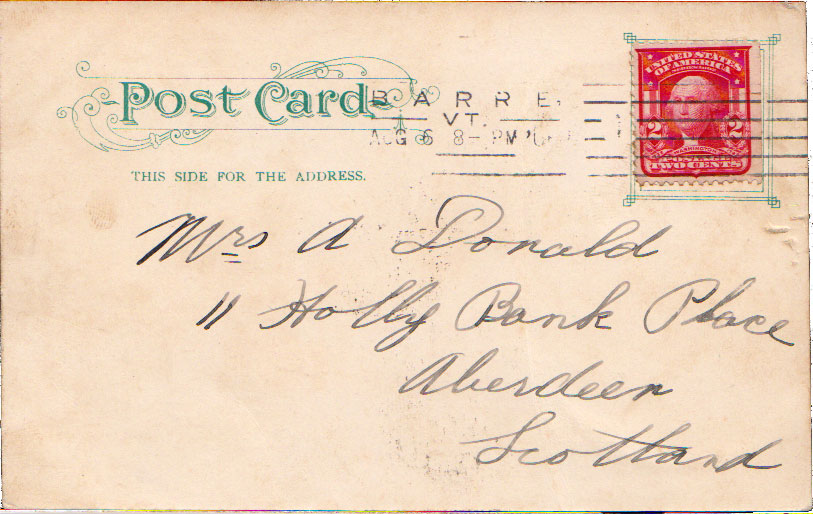 POST CARD.
BARRE.
VT.
AUG 6 8-PM
UNITED STATES OF AMERICA
2 2
WASHINGTON
POSTAGE
TWO CENTS
THIS SIDE FOR THE ADDRESS.
Mrs A Donald
11 Holly Bank Place
Aberdeen
Scotland